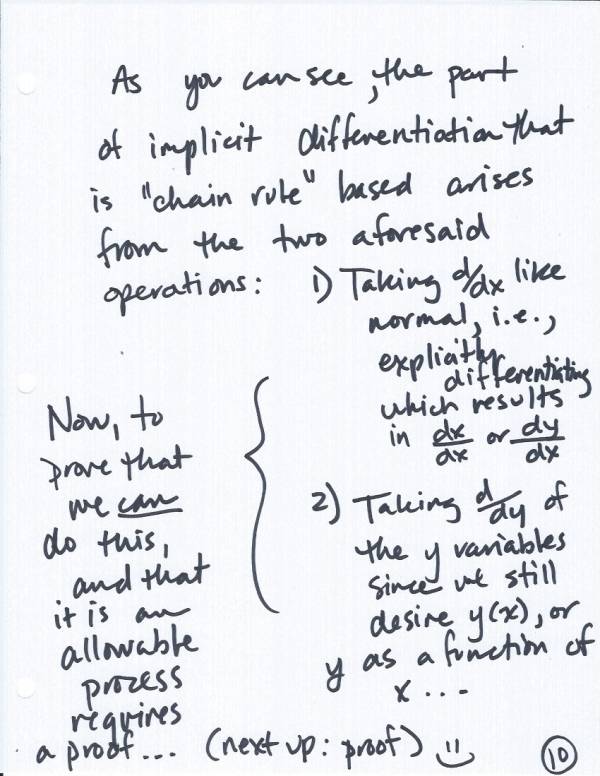 As you can see, the part
of implicit differentiation that
is "chain rule" based arises
from the two aforesaid
operations: 1) Taking d/dx like
normal, i.e.,
explicitly
differentiating
which results
in dx/dx or dy/dx
2) Taking d/dy of
the y variables
since we still
desire y(x), or
y as a function of
x ...
Now, to
prove that
we can
do this,
and that
it is an
allowable
process
requires
a proof... (next up: proof)
10